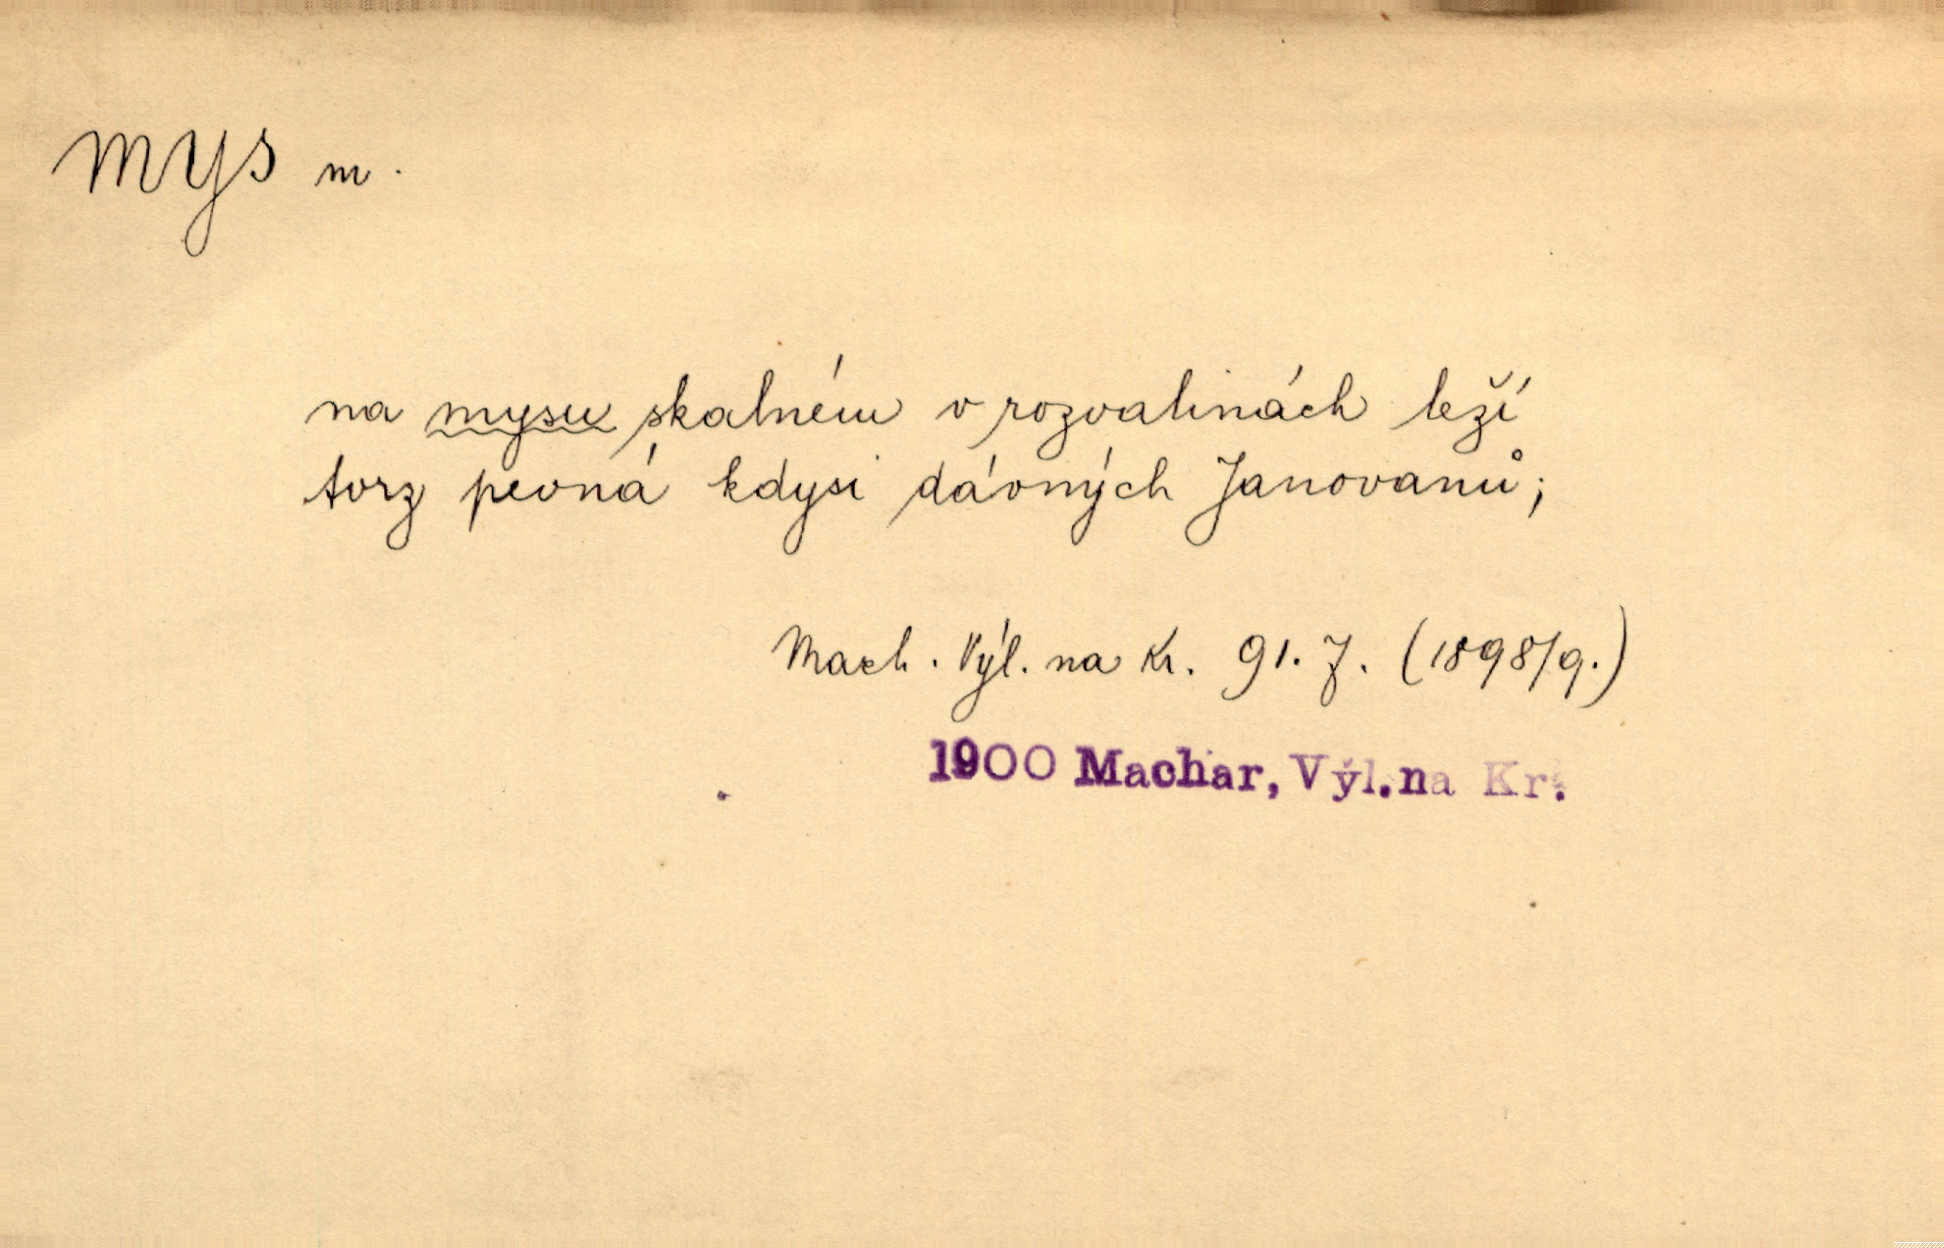 mys m.
na mysu skalném v rozvalinách leží
tvrz pevná kdysi dávných Janovanů;
Mach. Výl. na Kr. 91. J. (1898/9.)
1900 Machar, Výl.na Kr.